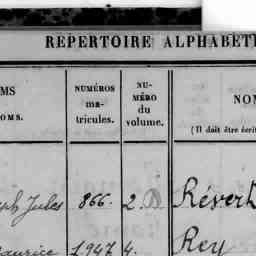 RÉPERTOIRE ALPHABÉTI
MS
OMS.
NUMÉROS
ma-
tricules.
NU-
MÉRO
du
volume.
NO
(Il doit être écrit
ph Jules 866. 2.
Réverd
aurice 1947 4.
Rey